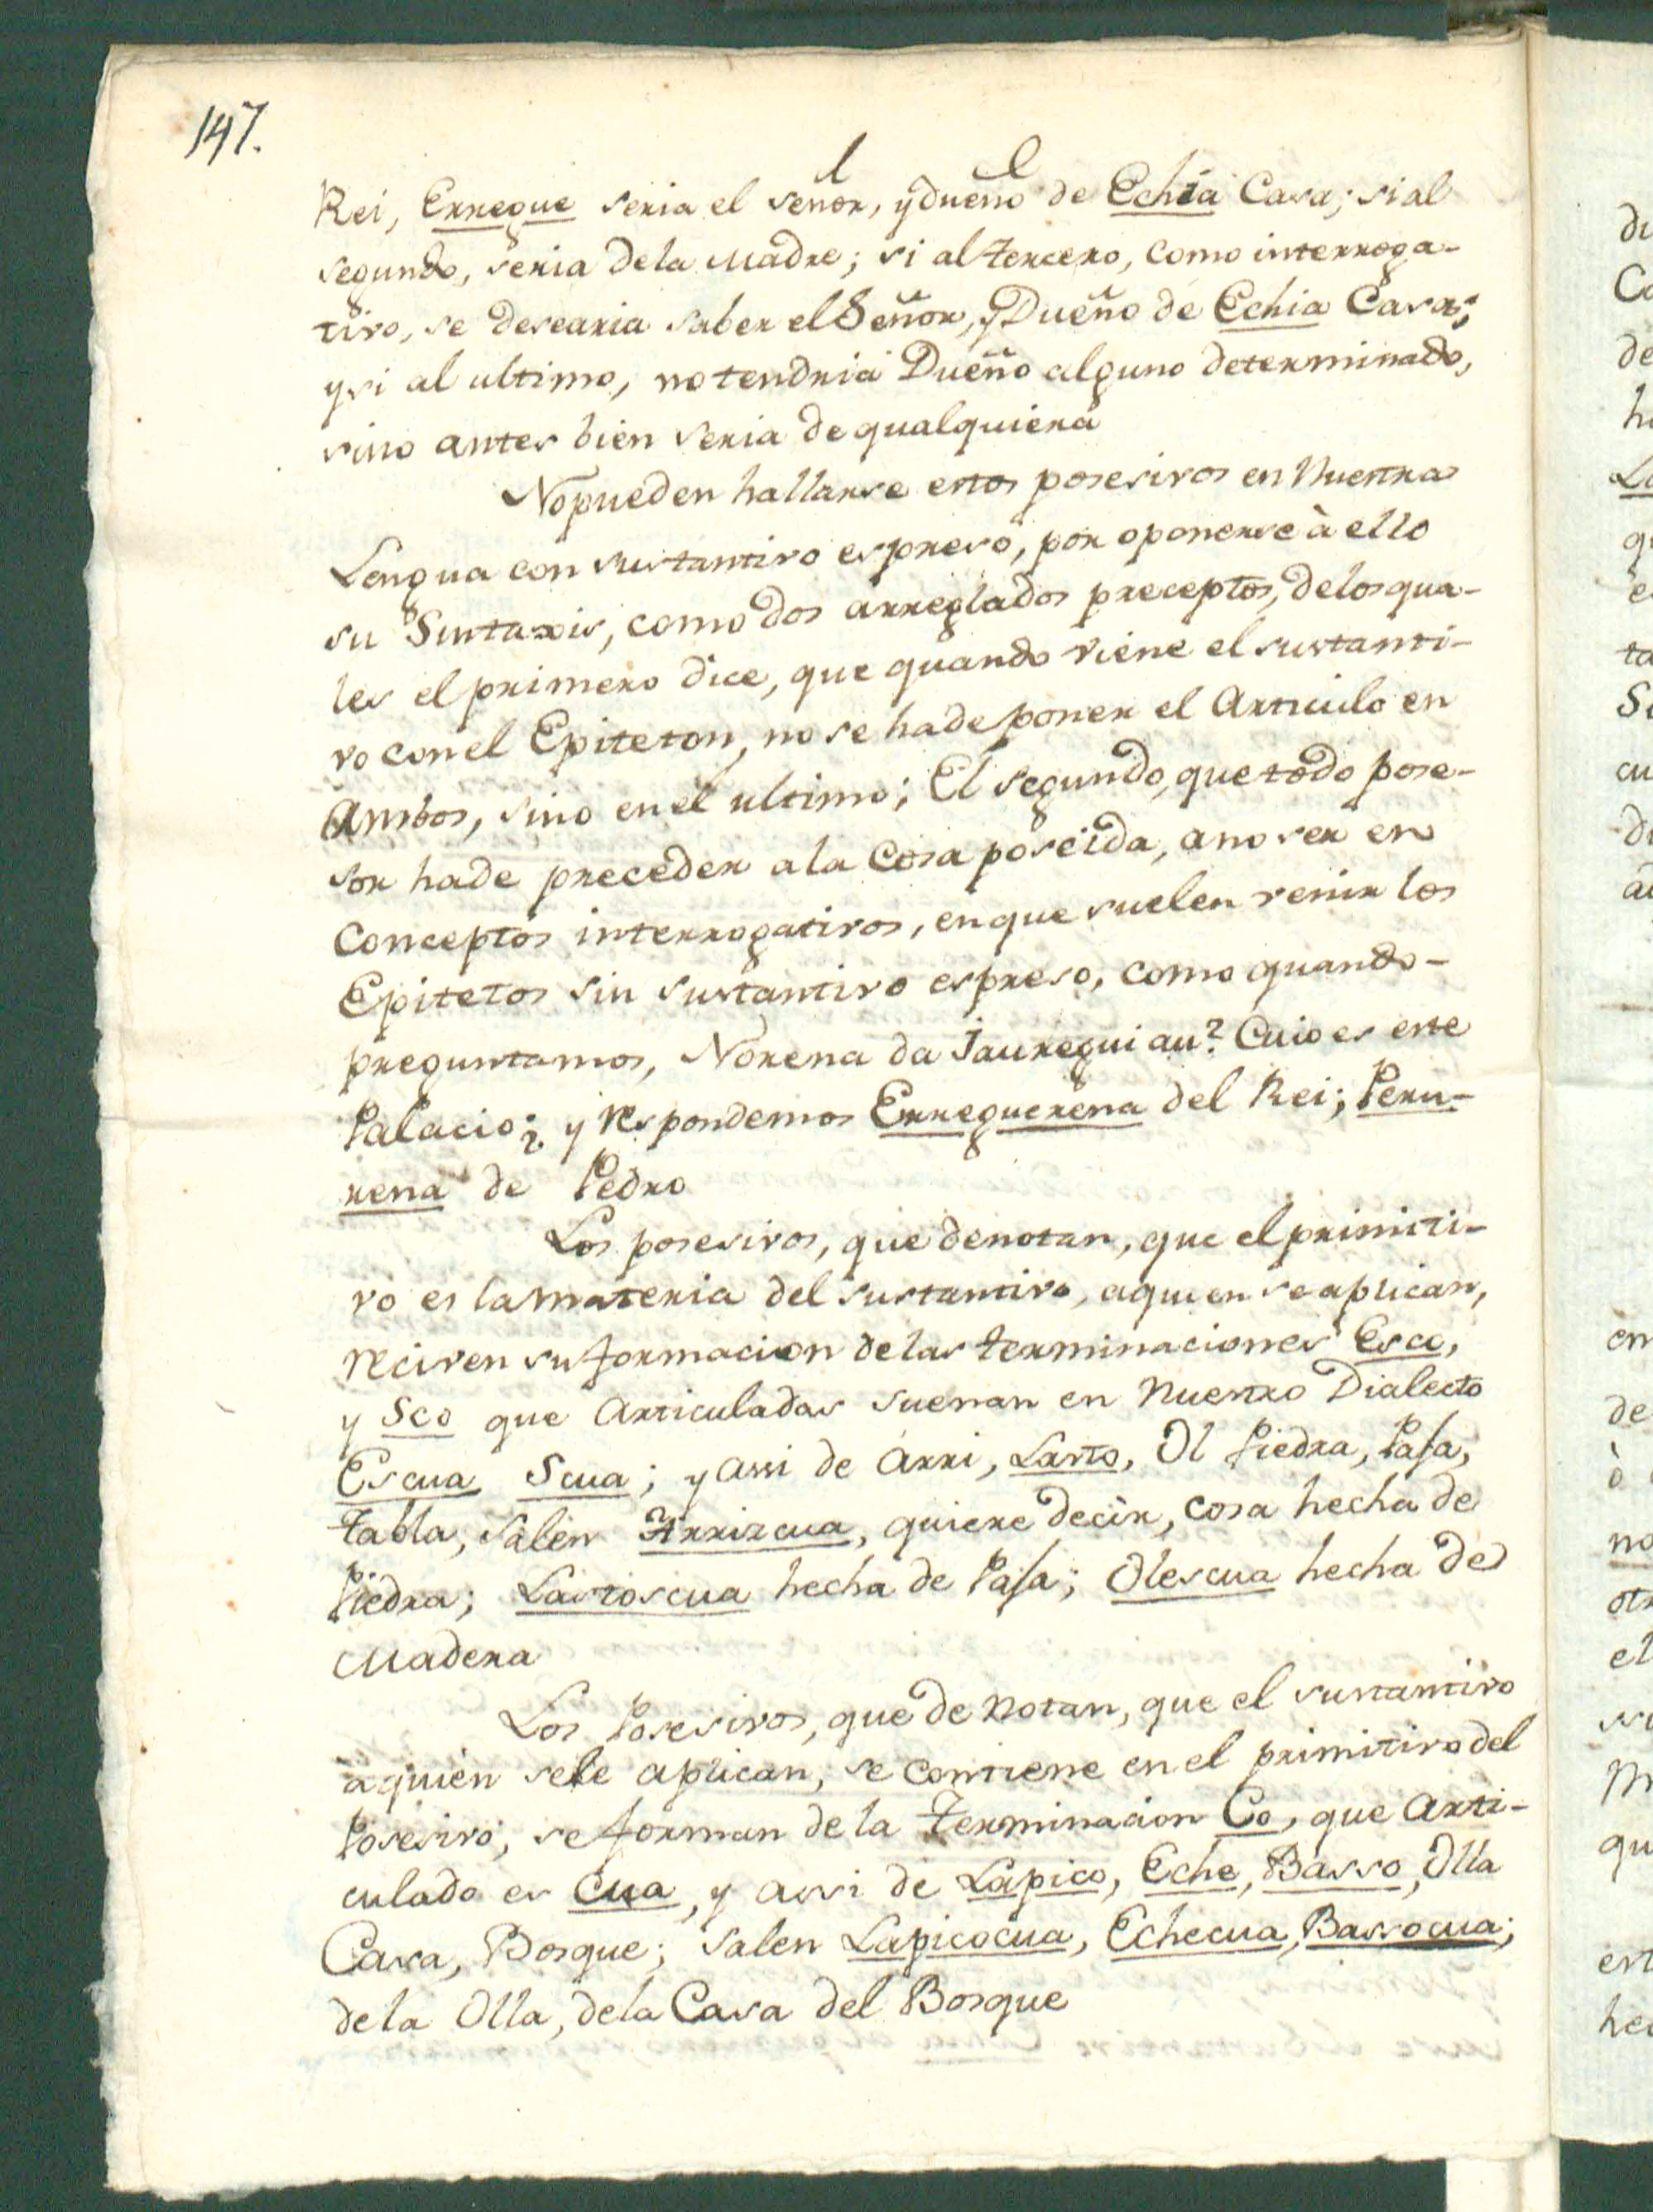 147.
Rei, Erregue seria el señor, y dueño de Echia Casa; si al
segundo, seria dela Madre; si al tercero, como interroga-
tivo, se desearia saber el Señor, y Dueño de Echia Casa;
y si al ultimo, no tendria Dueño alguno determinado,
sino antes bien seria de qualquiera
No pueden hallarse estos posesivos en Nuestra
Lengua con sustantivo espreso, por oponerse à ello
su Sintaxis, como dos arreglados preceptos, delos qua-
les el primero dice, que quando viene el sustanti-
vo con el Epiteton, no se hade poner el Articulo en
Ambos, sino en el ultimo; El segundo, que todo pose-
sor hade preceder a la Cosa poseida, a no ser en
Conceptos interrogativos, en que suelen venir los
Epitetos sin sustantivo espreso, como quando-
preguntamos, Norena da Jauregui au? Cuio es este
Palacio? y respondemos Erreguerena del Rei; Peru-
rena de Pedro
Los posesivos, que denotan, que el primiti-
vo es la materia del sustantivo, aquien se aplican,
reciven su formacion de las terminaciones Esco,
y Sco que Articuladas suenan en Nuestro Dialecto
Escua Scua; y assi de Arri, Lasto, Ol Piedra, Paja,
tabla, salen Arrizcua, quiere decir, cosa hecha de
Piedra; Lastoscua hecha de Paja; Olescua hecha de
Madera
Los Posesivos, que de notan, que el sustantivo
aquien sele aplican, se contiene en el primitivo del
Posesivo, se forman de la terminacion Co, que Arti-
culado es Cua, y assi de Lapico, Eche, Basso, Olla
Casa, Bosque; salen Lapicocua, Echecua, Bassocua;
de la Olla, dela Casa del Bosque